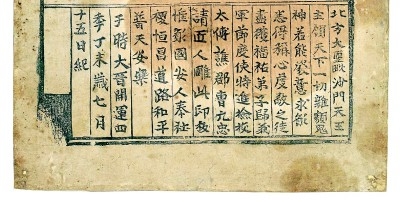 北方大聖毗沙門天王
主領天下一切雜類鬼
神若能發意求願
悉得稱心虔敬之徒
盡獲福祐弟子歸義
軍節度使特進檢校
太傅譙郡曹元忠
請匠人雕此印板
惟願國安人泰社
稷恒昌道路和平
普天安樂
于時大晉開運四
年丁未歲七月
十五日紀